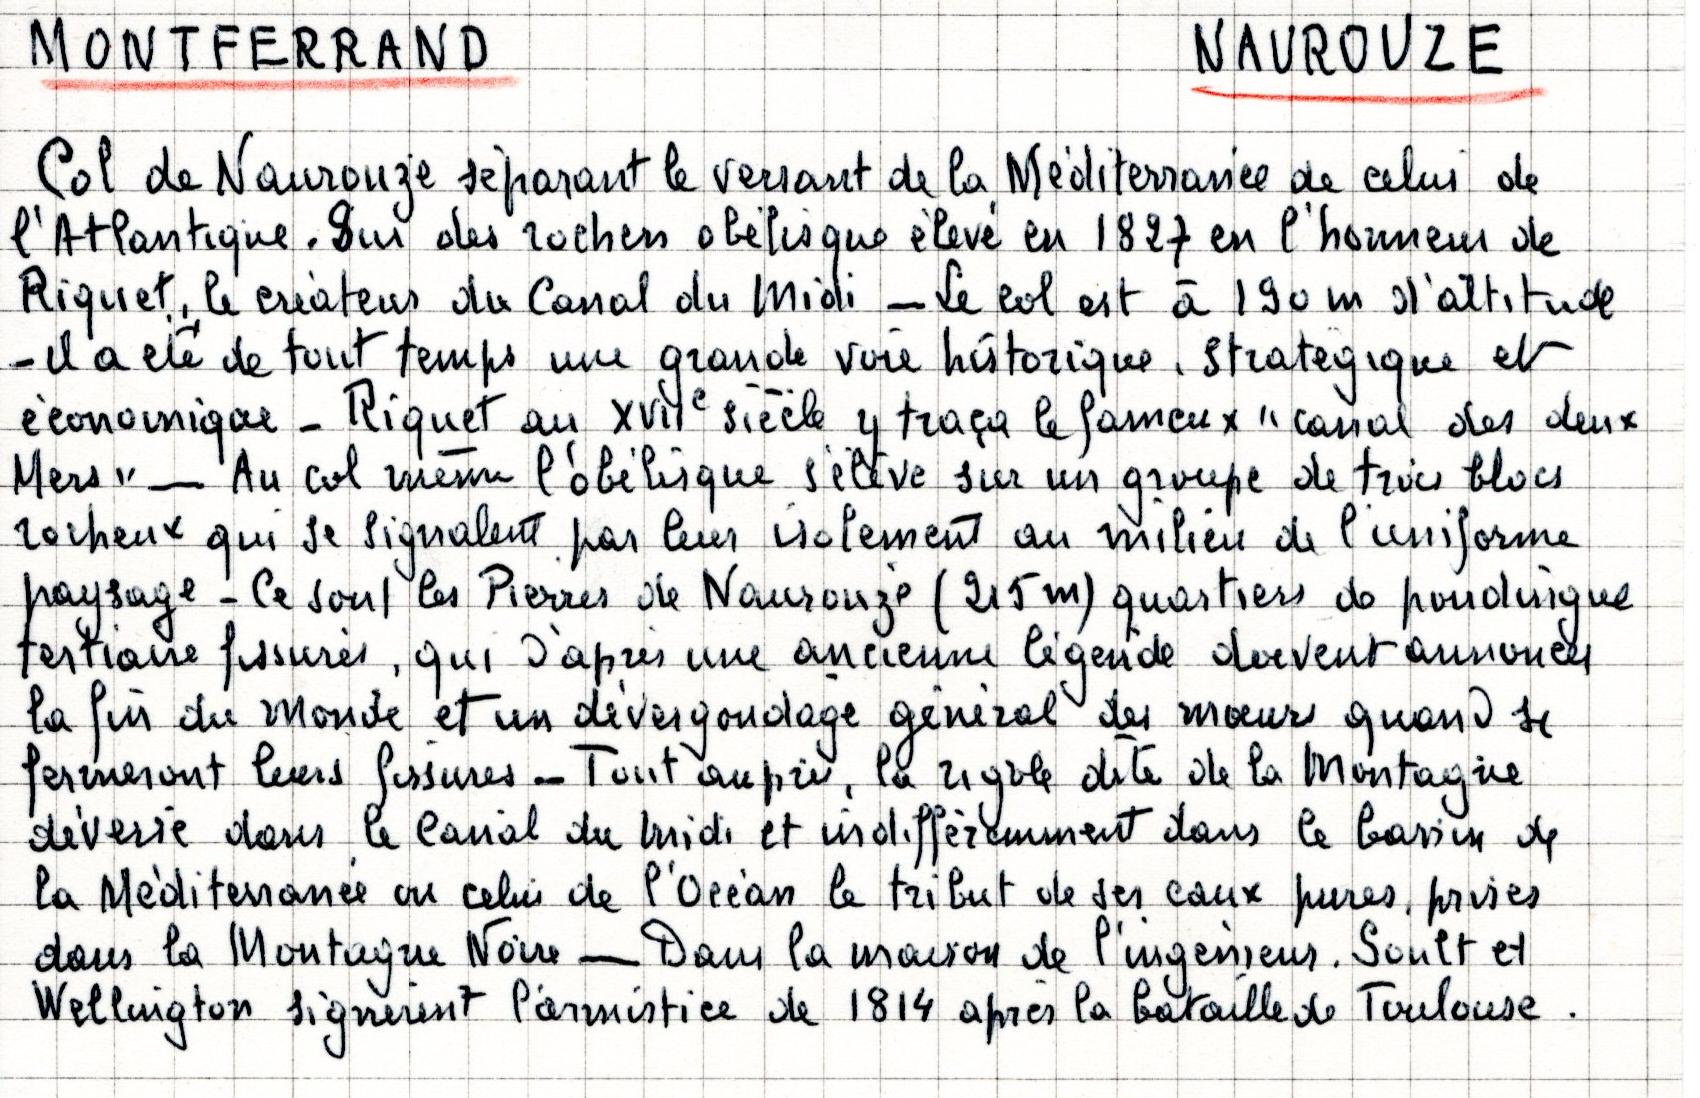 MONTFERRAND NAUROUZE
Col de Naurouze séparant le versant de la Méditerranée de celui de
l'Atlantique. Sur des rochers obélisque élevé en 1827 en l'honneur de
Riquet, le créateur du Canal du Midi — Le col est à 190 m d'altitude
- Il a été de tout temps une grande voie historique, stratégique et
économique - Riquet au XVIIe siècle y traça le fameux "canal des deux
Mers" — Au col même l'obélisque s'élève sur un groupe de trois blocs
rocheux qui se signalent par leur isolement au milieu de l'uniforme
paysage - Ce sont les Pierres de Naurouze (215 m) quartiers de poudingue
tertiaire fissurés, qui d'après une ancienne légende doivent annoncer
la fin du Monde et un dévergondage général des mœurs quand se
fermeront leurs fissures - Tout auprès, la rigole dite de la Montagne
déverse dans le Canal du Midi et indifféremment dans le bassin de
la Méditerranée ou celui de l'Océan le tribut de ses eaux pures, prises
dans la Montagne Noire — Dans la maison de l'ingénieur, Soult et
Wellington signèrent l'armistice de 1814 après la bataille de Toulouse.